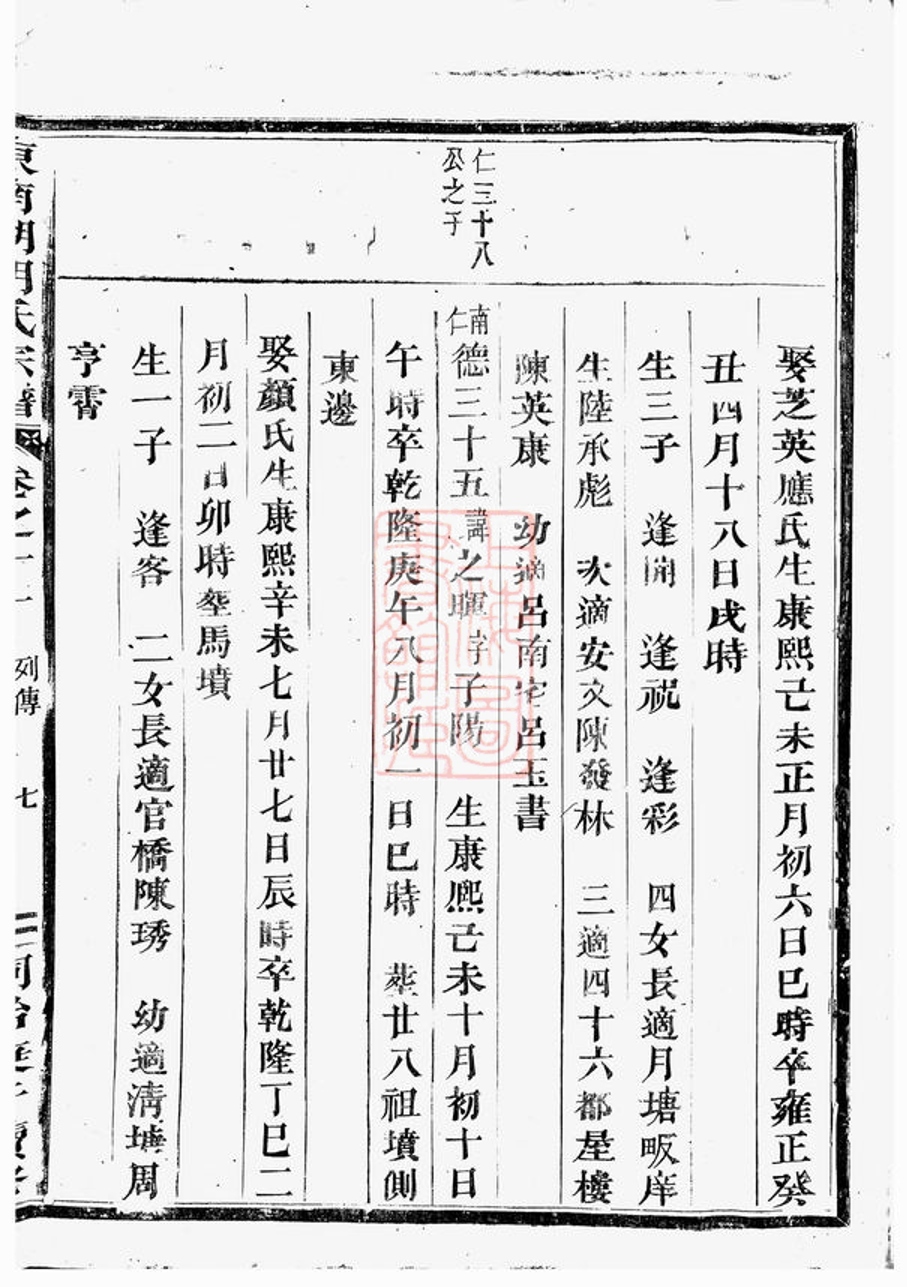 仁三十八
公之子
娶芝英應氏生康熙己未正月初六日巳時卒雍正癸
丑四月十八日戌時
生三子　逢開　逢祝　逢彩　四女長適月塘畈庠
生陸承彪　次適安文陳發林　三適四十六都屋樓
陳英康　幼適呂南宅呂玉書
南仁德三十五諱之暉字子陽　生康熙己未十月初十日
午時卒乾隆庚午八月初一日巳時　塟廿八祖墳側
東邊
娶顏氏生康熙辛未七月廿七日辰時卒乾隆丁巳二
月初二日卯時塟馬墳
生一子　逢客　二女長適官橋陳琇　幼適清塘周
亨霄
氏宗譜
列傳
七